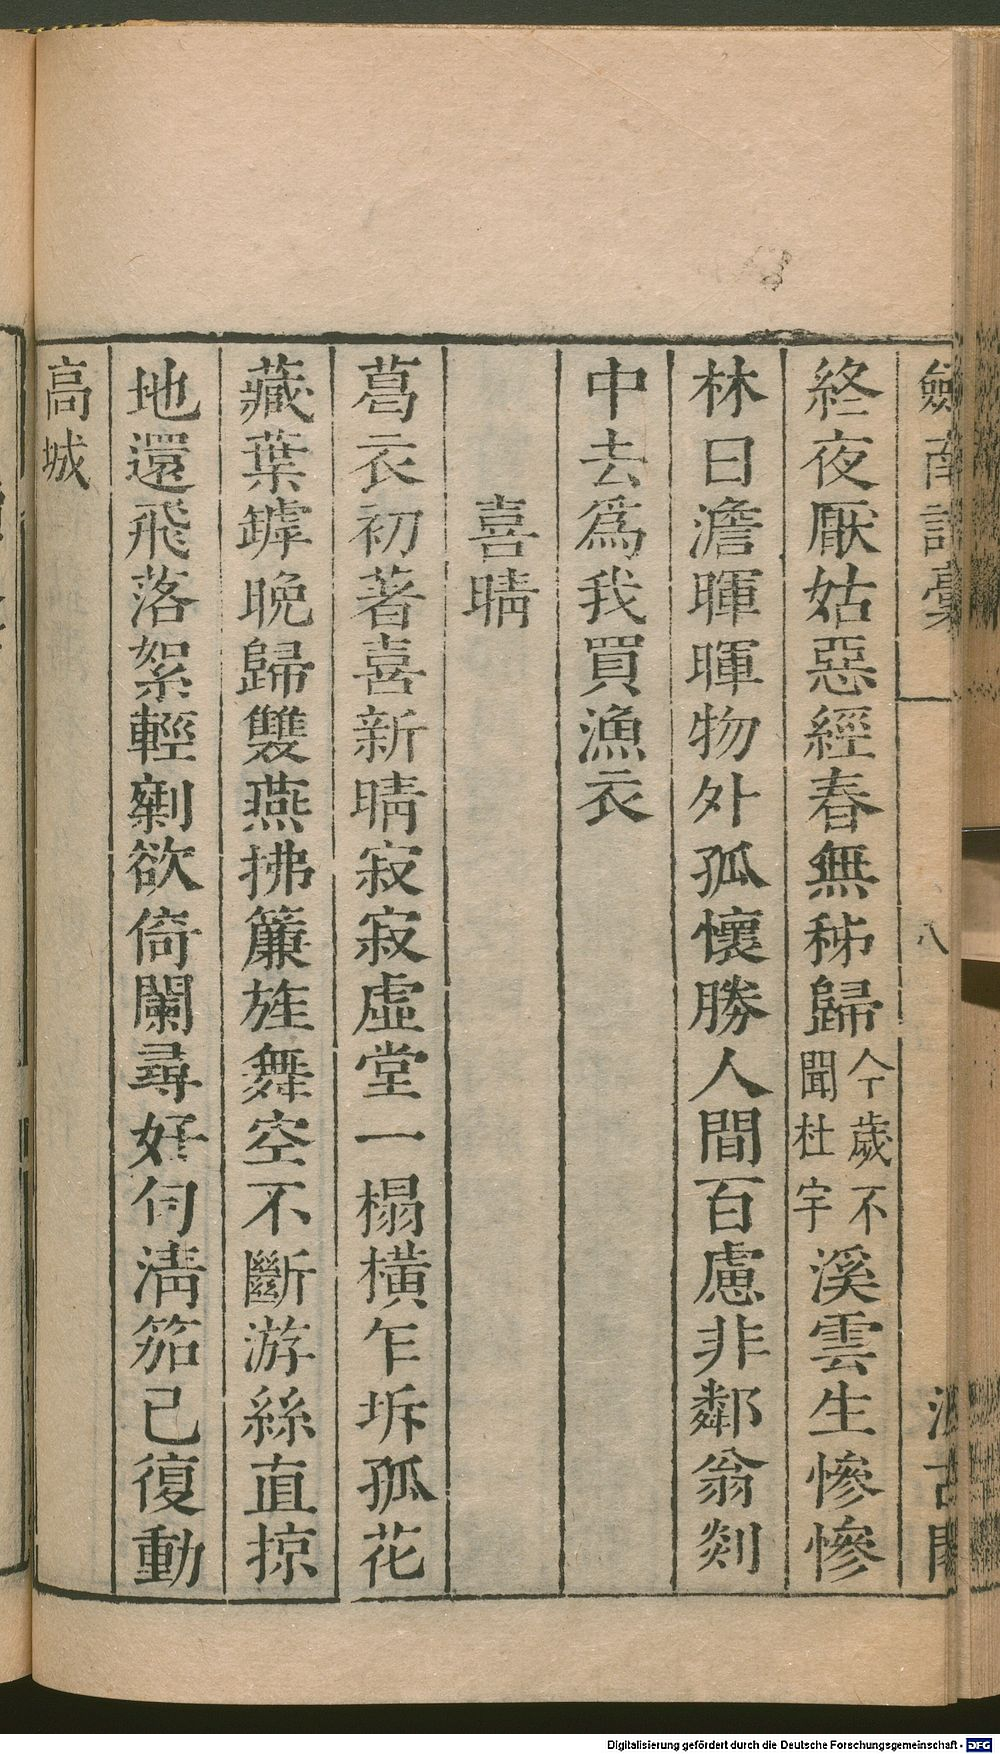 劒南詩稾
八
汲古閣
終夜厭姑惡經春無秭歸今歲不聞杜宇溪雲生慘慘
林日澹暉暉物外孤懷勝人間百慮非鄰翁剡
中去爲我買漁衣
喜晴
葛衣初著喜新晴寂寂虛堂一榻橫乍坼孤花
藏葉罅晚歸雙燕拂簾旌舞空不斷游絲直掠
地還飛落絮輕剩欲倚闌尋好句淸笳已復動
高城
Digitalisierung gefördert durch die Deutsche Forschungsgemeinschaft - DFG